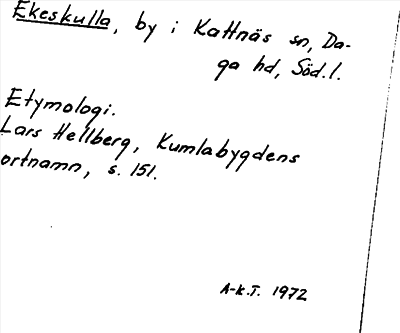 Ekeskulla, by i Kattnäs sn, Da-
ga hd, Söd.l.
Etymologi.
Lars Hellberg, Kumlabygdens
ortnamn, s. 151.
A-K.T. 1972